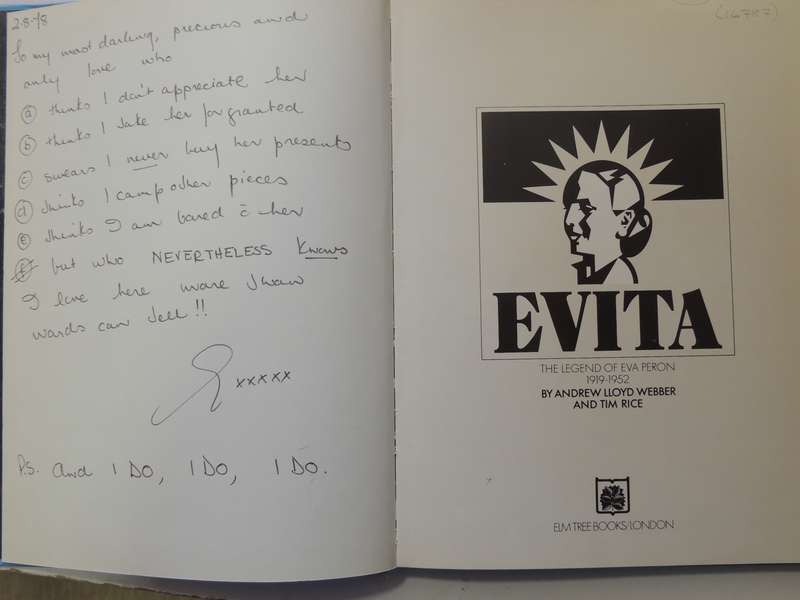 2-8-78
To my most darling, precious and
only love who
(a) thinks I don't appreciate her
(b) thinks I take her for granted
(c) swears I never buy her presents
(d) thinks I camp other pieces
(e) thinks I am bored c̄ her
(f) but who NEVERTHELESS Knows
I love here more than
words can tell!!
xxxxx
P.S. and I DO, I DO, I DO.
EVITA
THE LEGEND OF EVA PERON
1919-1952
BY ANDREW LLOYD WEBBER
AND TIM RICE
ELM TREE BOOKS/LONDON